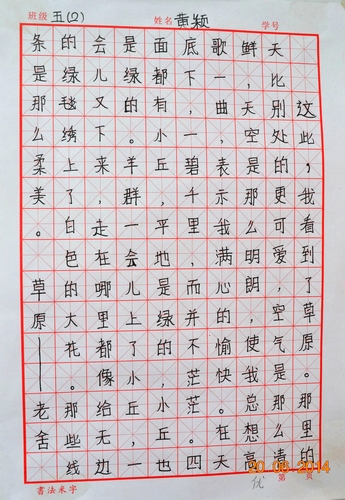 班级 五(2) 姓名 黄颖 学号
这此，我看到了草原。那里的
天比别处的更可爱，空气是那么清
鲜，天空是那么明朗，使我总想高
歌一曲，表示我满心的愉快。在天
底下，一碧千里，而并不茫茫。四
面都有小丘，平地是绿的，小丘也
是绿的。羊群一会儿上了小丘，一
会儿又下来，走在哪里都像给无边
的绿毯绣上了白色的大花。那些线
条是那么柔美。
草原——老舍
书法米字
优
第